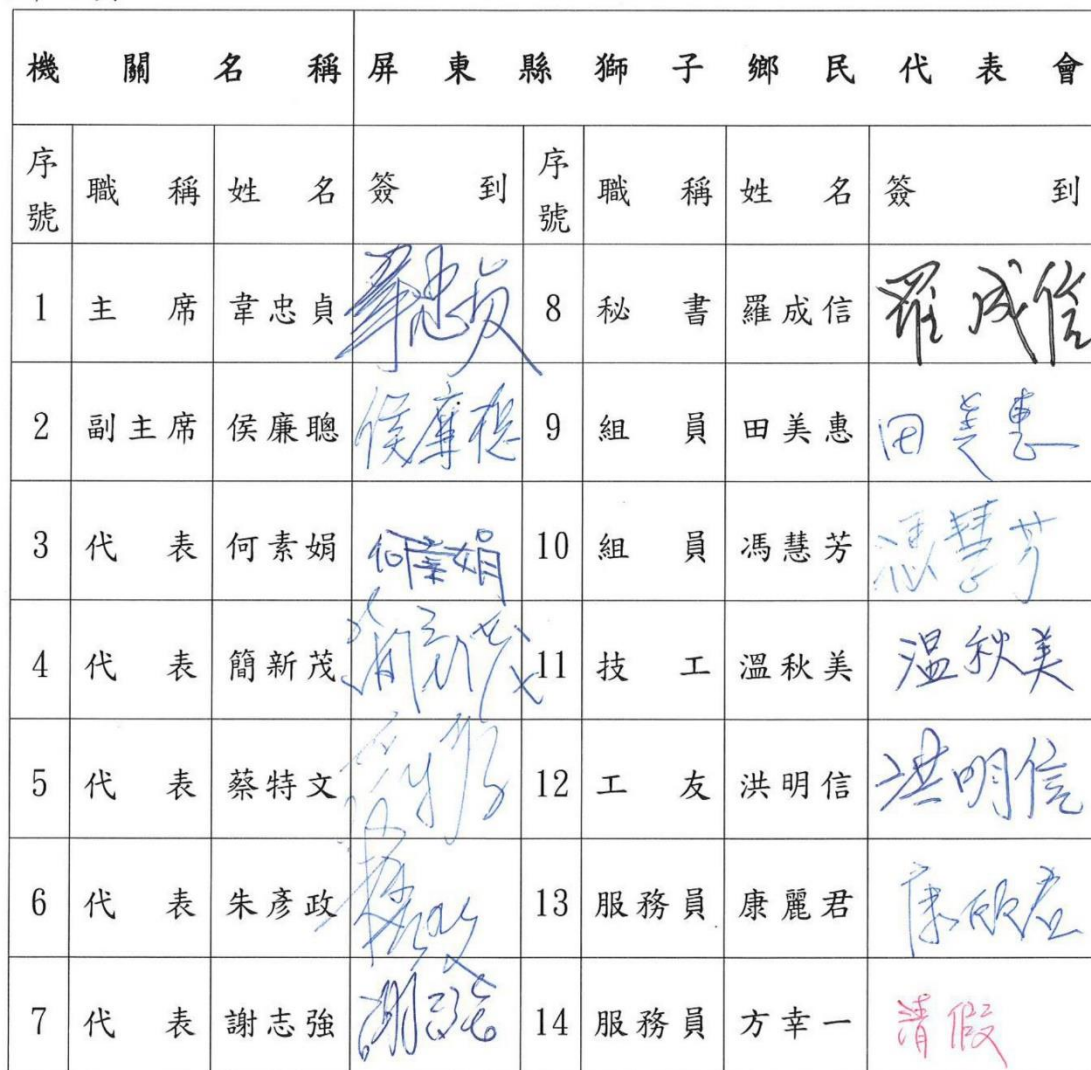 機關名稱 屏東縣獅子鄉民代表會
序號 職稱 姓名 簽到 序號 職稱 姓名 簽到
1 主席 韋忠貞 韋忠貞 8 秘書 羅成信 羅成信
2 副主席 侯廉聰 9 組員 田美惠 田美惠
3 代表 何素娟 何素娟 10 組員 馮慧芳 馮慧芳
4 代表 簡新茂 簡新茂 11 技工 溫秋美 温秋美
5 代表 蔡特文 12 工友 洪明信 洪明信
6 代表 朱彥政 13 服務員 康麗君
7 代表 謝志強 14 服務員 方幸一 請假